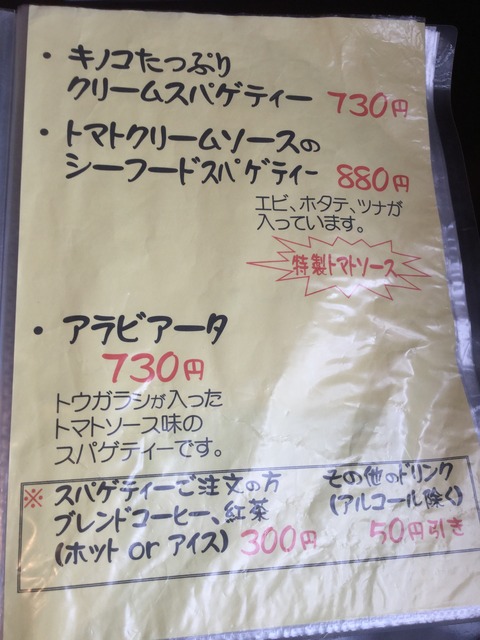 ・キノコたっぷり
クリームスパゲティー 730円
・トマトクリームソースの
シーフードスパゲティー 880円
エビ、ホタテ、ツナが
入っています。
特製トマトソース
・アラビアータ
730円
トウガラシが入った
トマトソース味の
スパゲティーです。
※スパゲティーご注文の方
ブレンドコーヒー、紅茶
(ホット or アイス) 300円
その他のドリンク
(アルコール除く)
50円引き